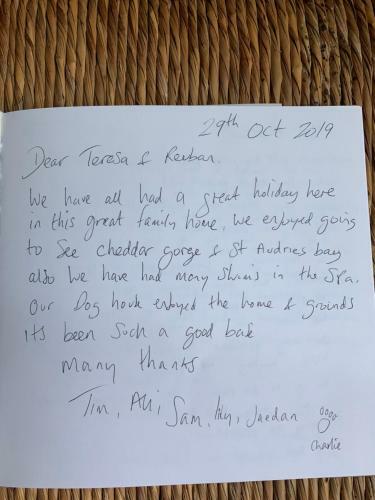 29th Oct 2019
Dear Teresa & Reuban.
We have all had a great holiday here
in this great family home, we enjoyed going
to see cheddar gorge & St Audries bay
also we have had many Swims in the Spa.
our Dog have enjoyed the home & grounds
its been such a good
many thanks
Tim, Ali, Sam, lily, Jaedan
Charlie